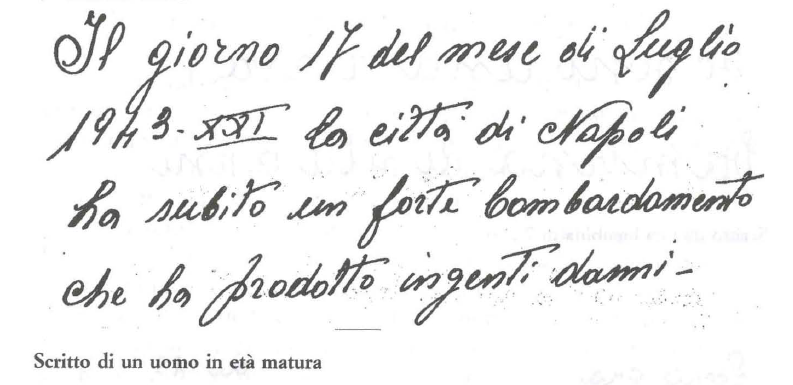 Il giorno 17 del mese di Luglio
1943-XXI la città di Napoli
ha subito un forte bombardamento
che ha prodotto ingenti danni-
Scritto di un uomo in età matura